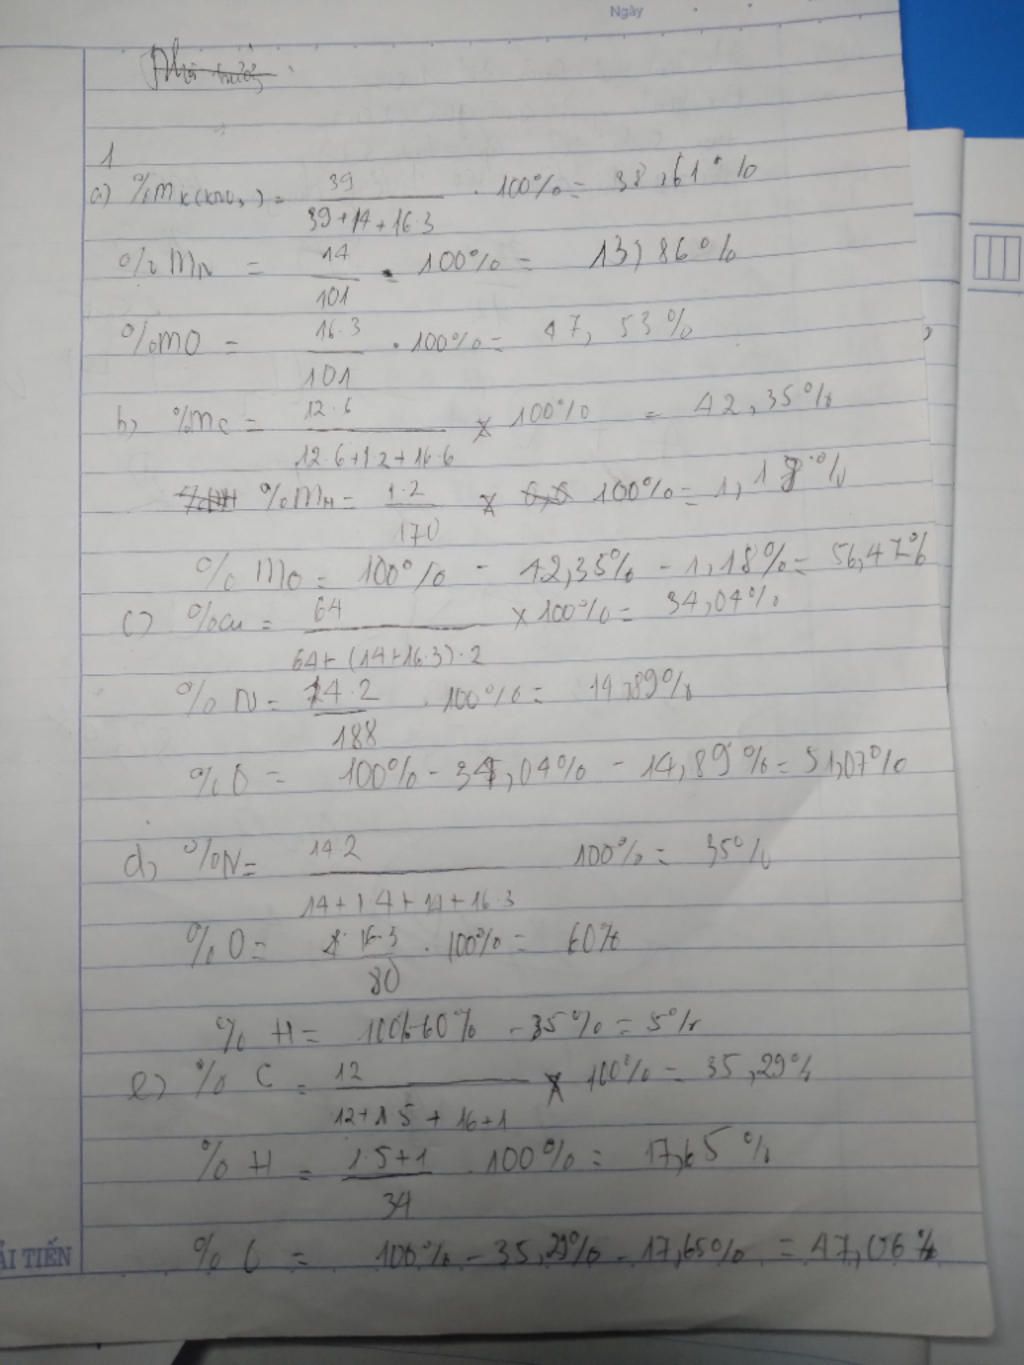 Ngày
1
a) %m K(KNO₃) = 39 / 39+14+16·3 · 100% = 38,61%
%mN = 14 / 101 · 100% = 13,86%
%mO = 16·3 / 101 · 100% = 47,53%
b) %mC = 12·6 / 12·6+1·2+16·6 x 100% = 42,35%
%mH = 1·2 / 170 x 100% = 1,18%
%mO = 100% - 42,35% - 1,18% = 56,47%
c) %Cu = 64 / 64+(14+16·3)·2 x 100% = 34,04%
%N = 14·2 / 188 · 100% = 14,89%
%O = 100% - 34,04% - 14,89% = 51,07%
d) %N = 14·2 / 14+1·4+14+16·3 100% = 35%
%O = 16·3 / 80 · 100% = 60%
%H = 100%-60% - 35% = 5%
e) %C = 12 / 12+1·5+16+1 x 100% = 35,29%
%H = 1·5+1 / 34 · 100% = 17,65%
%O = 100% - 35,29% - 17,65% = 47,06%
ẢI TIẾN